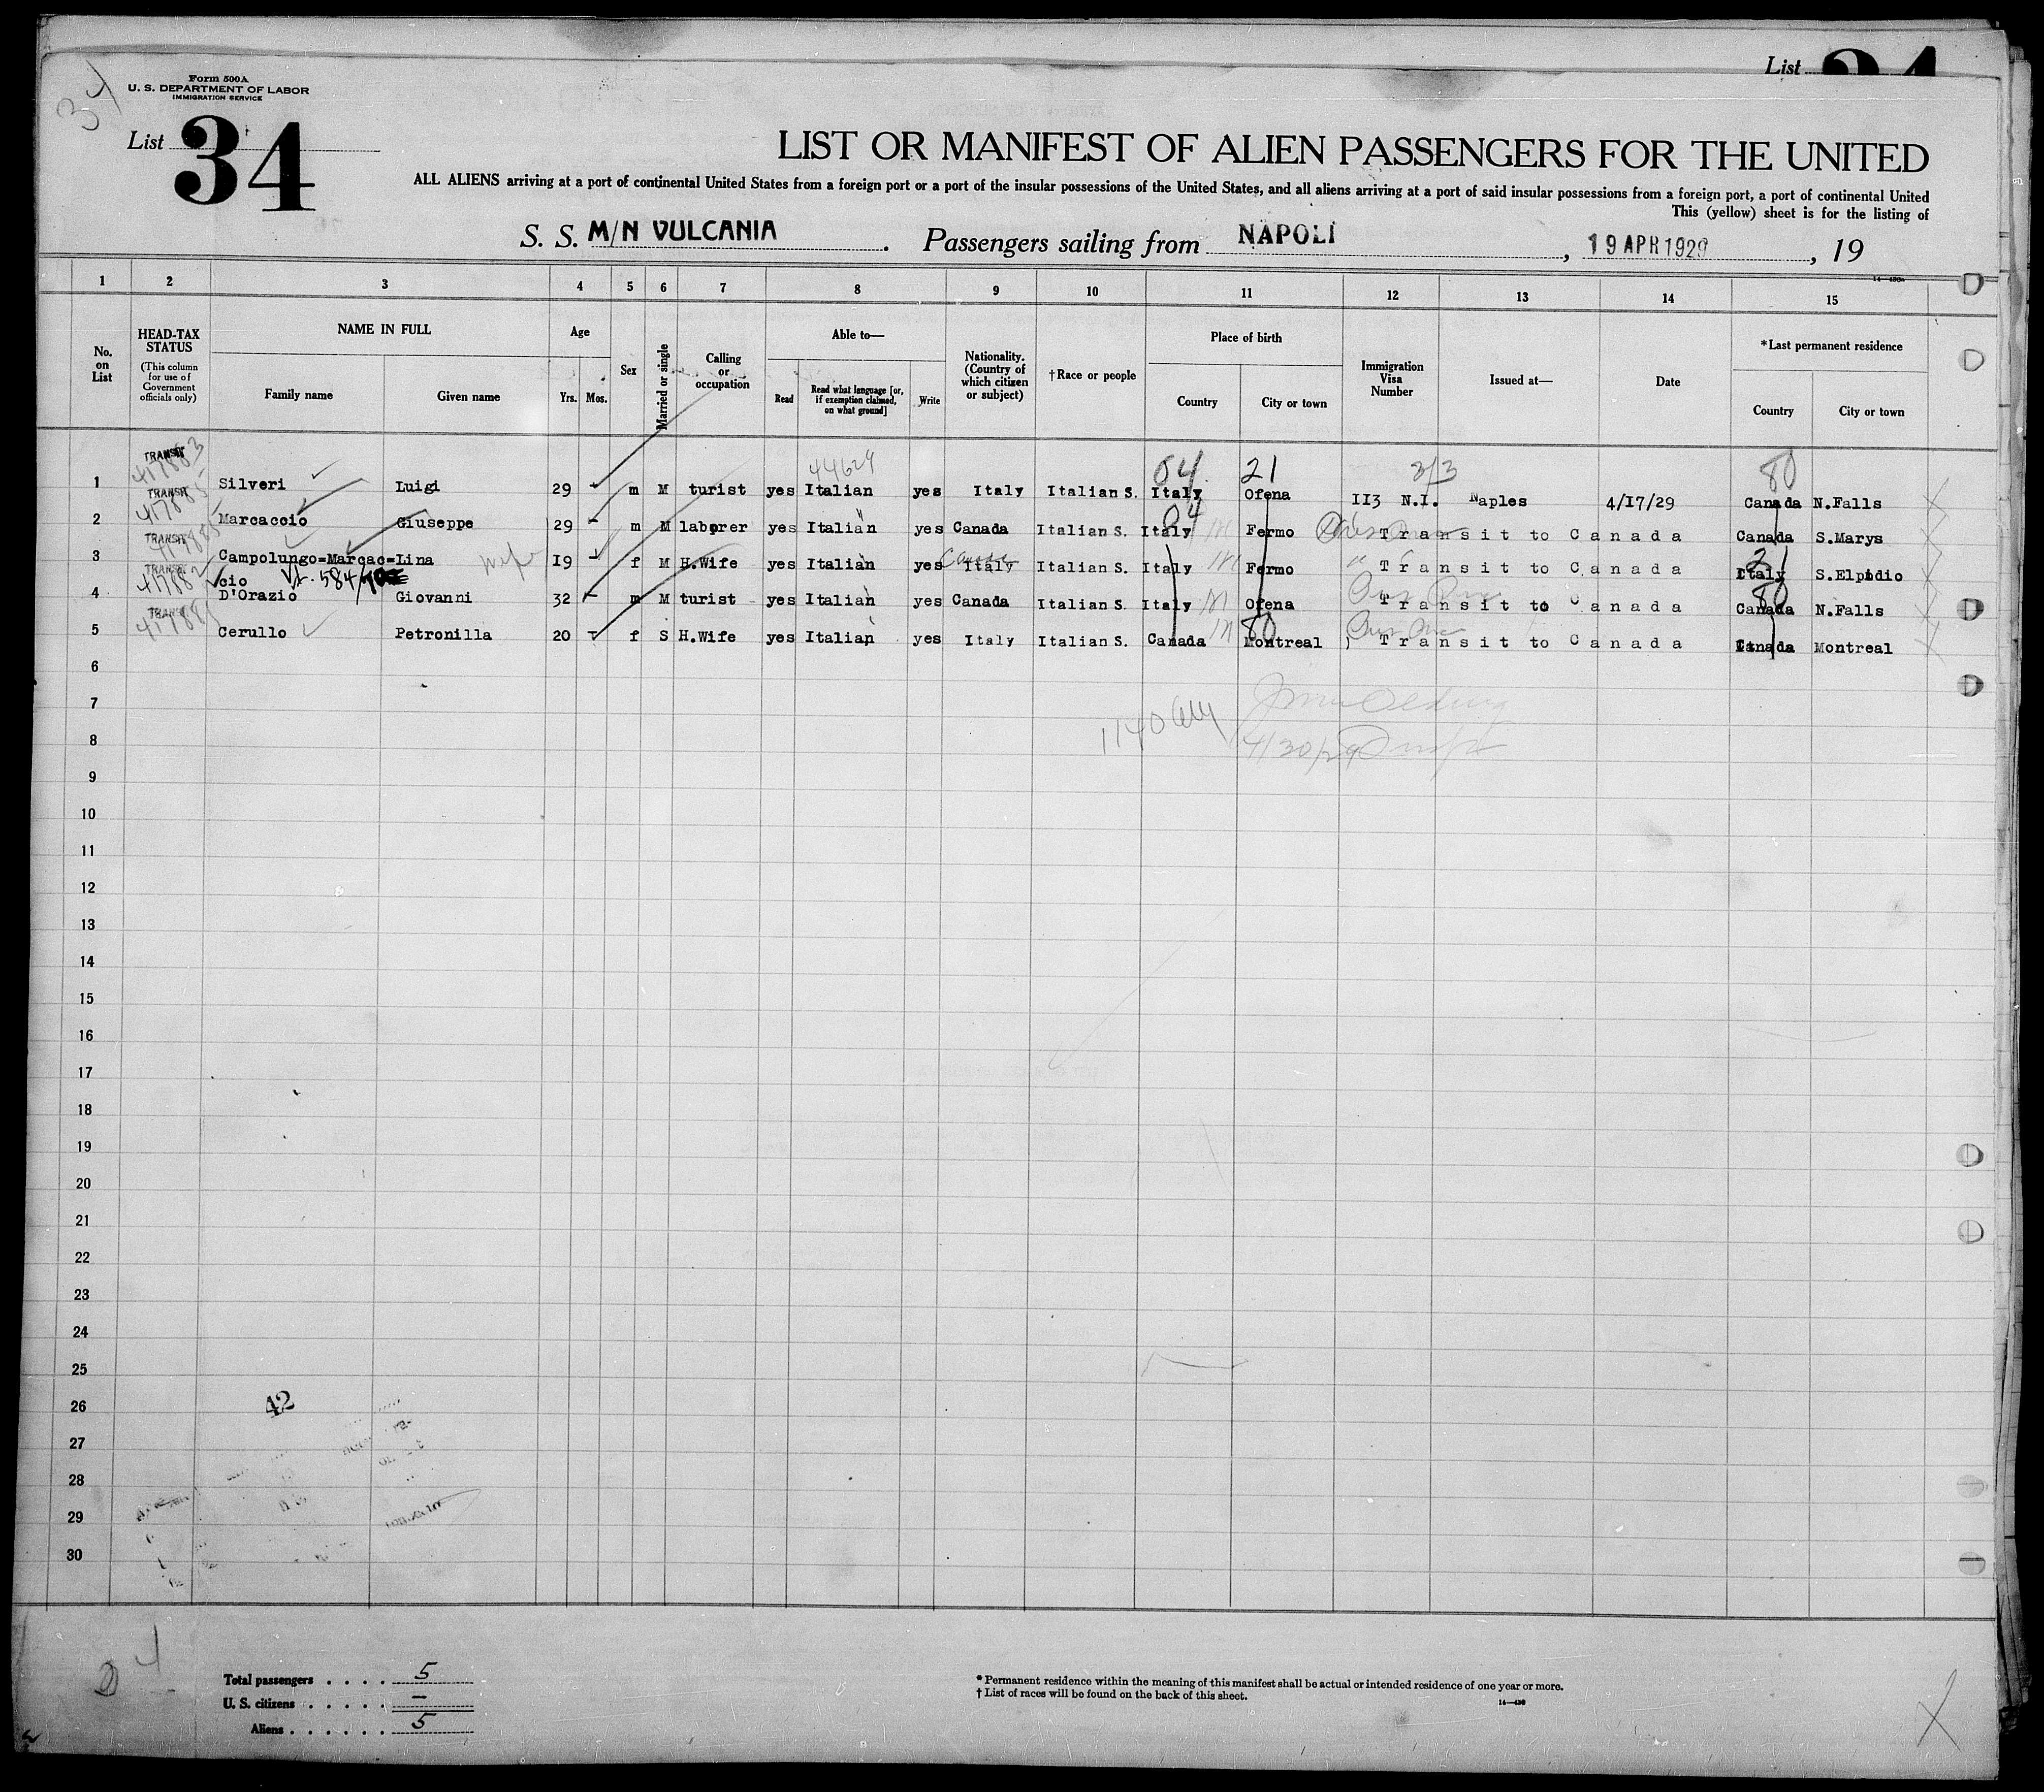 List
34
Form 500A
U. S. DEPARTMENT OF LABOR
IMMIGRATION SERVICE
List 34
LIST OR MANIFEST OF ALIEN PASSENGERS FOR THE UNITED
ALL ALIENS arriving at a port of continental United States from a foreign port or a port of the insular possessions of the United States, and all aliens arriving at a port of said insular possessions from a foreign port, a port of continental United
This (yellow) sheet is for the listing of
S. S. M/N VULCANIA. Passengers sailing from NAPOLI, 19 APR 1929, 19
14—430a
1 2 3 4 5 6 7 8 9 10 11 12 13 14 15
No. on List
HEAD-TAX STATUS
(This column for use of Government officials only)
NAME IN FULL
Family name Given name
Age
Yrs. Mos.
Sex
Married or single
Calling or occupation
Able to—
Read
Read what language [or, if exemption claimed, on what ground]
Write
Nationality. (Country of which citizen or subject)
†Race or people
Place of birth
Country City or town
Immigration Visa Number
Issued at—
Date
*Last permanent residence
Country City or town
44629 04 21 3/3 80
1 TRANSIT 417883 Silveri Luigi 29 - m M turist yes Italian yes Italy Italian S. Italy Ofena 113 N.I. Naples 4/17/29 Canada N.Falls
2 TRANSIT 417885 Marcaccio Giuseppe 29 - m M laborer yes Italian " yes Canada Italian S. Italy 04 Fermo Transit to Canada Canada S.Marys
3 TRANSIT 417885 Campolungo=Marcac= Lina wife 19 - f M H.Wife yes Italian yes Italy Canada Italian S. Italy Fermo " Transit to Canada Italy 21 S.Elpidio
cio
4 TRANSIT 417882 D'Orazio Giovanni 32 - m M turist yes Italian yes Canada Italian S. Italy Ofena Transit to Canada Canada 80 N.Falls
5 TRANSIT Cerullo Petronilla 20 - f S H.Wife yes Italian yes Italy Italian S. Canada Montreal 80 Transit to Canada Canada Montreal
6
7
8 4/30/29
9
10
11
12
13
14
15
16
17
18
19
20
21
22
23
24
25
26 42
27
28
29
30
Total passengers . . . . 5
U. S. citizens . . . . . -
Aliens . . . . . . 5
* Permanent residence within the meaning of this manifest shall be actual or intended residence of one year or more.
† List of races will be found on the back of this sheet.
14—430